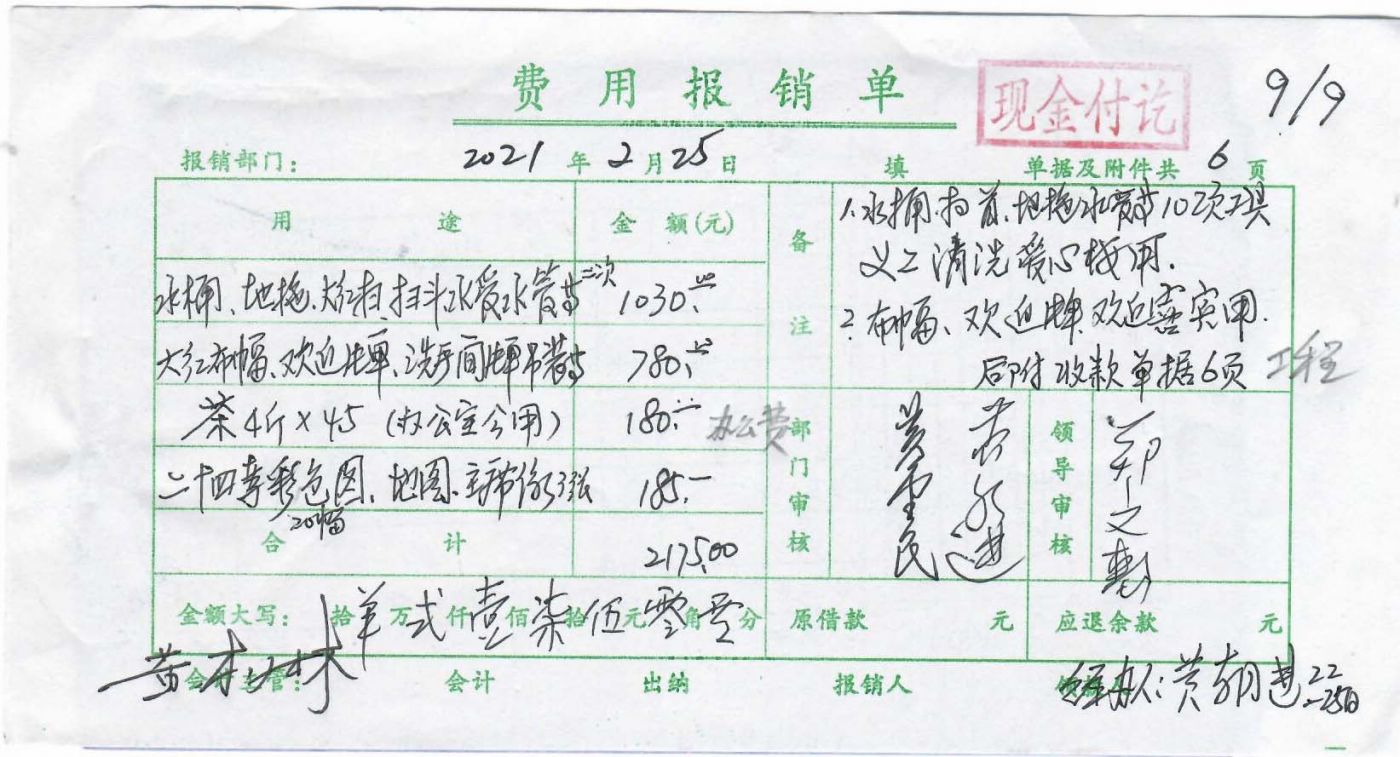 费用报销单
现金付讫
9/9
报销部门: 2021 年 2 月 25 日 填 单据及附件共 6 页
用途 金额(元)
水桶、地拖、 1030.
大红布幅、欢迎牌、洗手间牌吊装等 780.
茶4斤×45 (办公室公用) 180.— 办公费
二十四孝彩色图、地图、主席像 185.—
20幅
合计 2175.00
备注
1. 水桶、扫 地拖水管等10项工具
义工清洗爱心栈用.
2. 布幅、欢迎牌 欢迎 实用.
后附收款单据6页 工程
部门审核
领导审核
金额大写: 拾 万 贰 仟 壹 佰 柒 拾 伍 元 零 角 零 分 原借款 元 应退余款 元
会计主管: 会计 出纳 报销人
经办人: 黄朝进